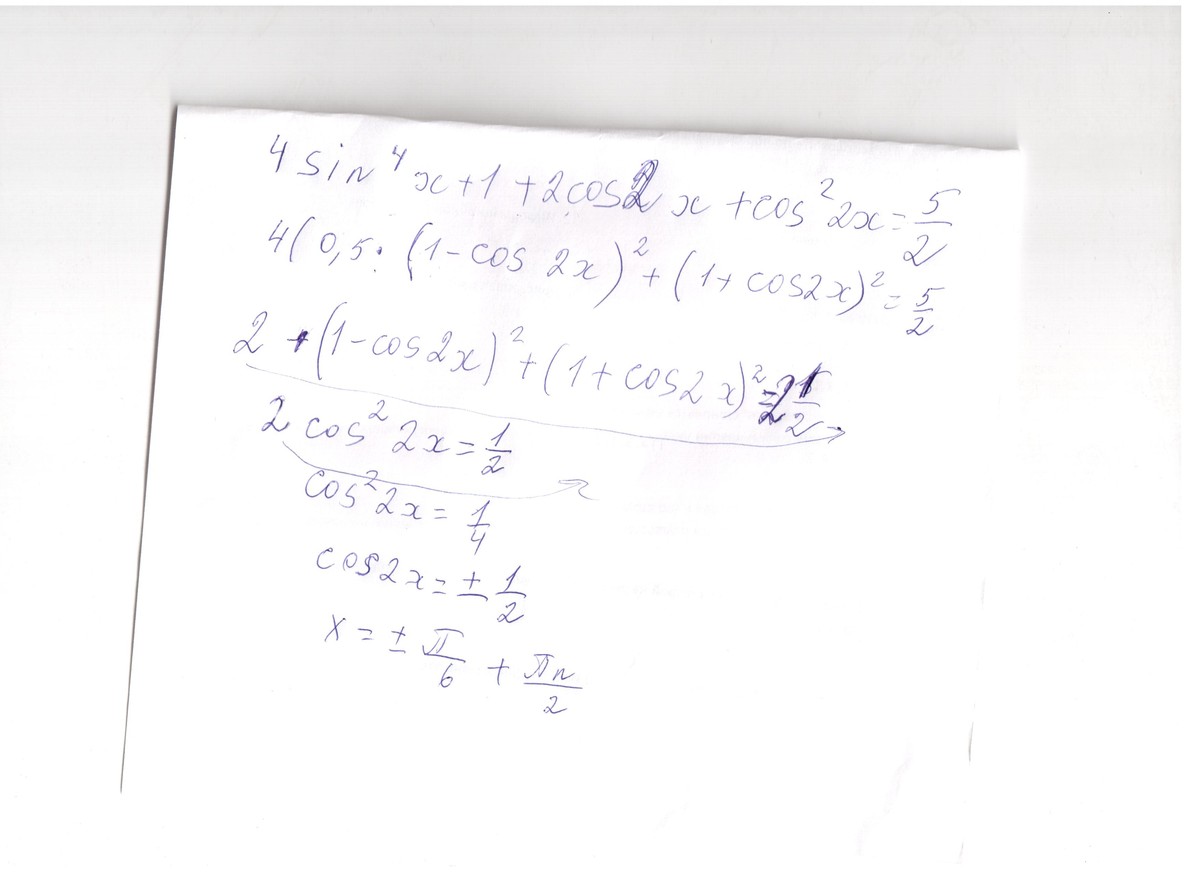 4 sin⁴ x + 1 + 2cos2x + cos²2x = 5/2
4(0,5·(1-cos 2x)² + (1+cos2x)² = 5/2
2 + (1-cos2x)² + (1+cos2x)² = 2 1/2
2 cos² 2x = 1/2
cos² 2x = 1/4
cos2x = ± 1/2
x = ± π/6 + πn/2